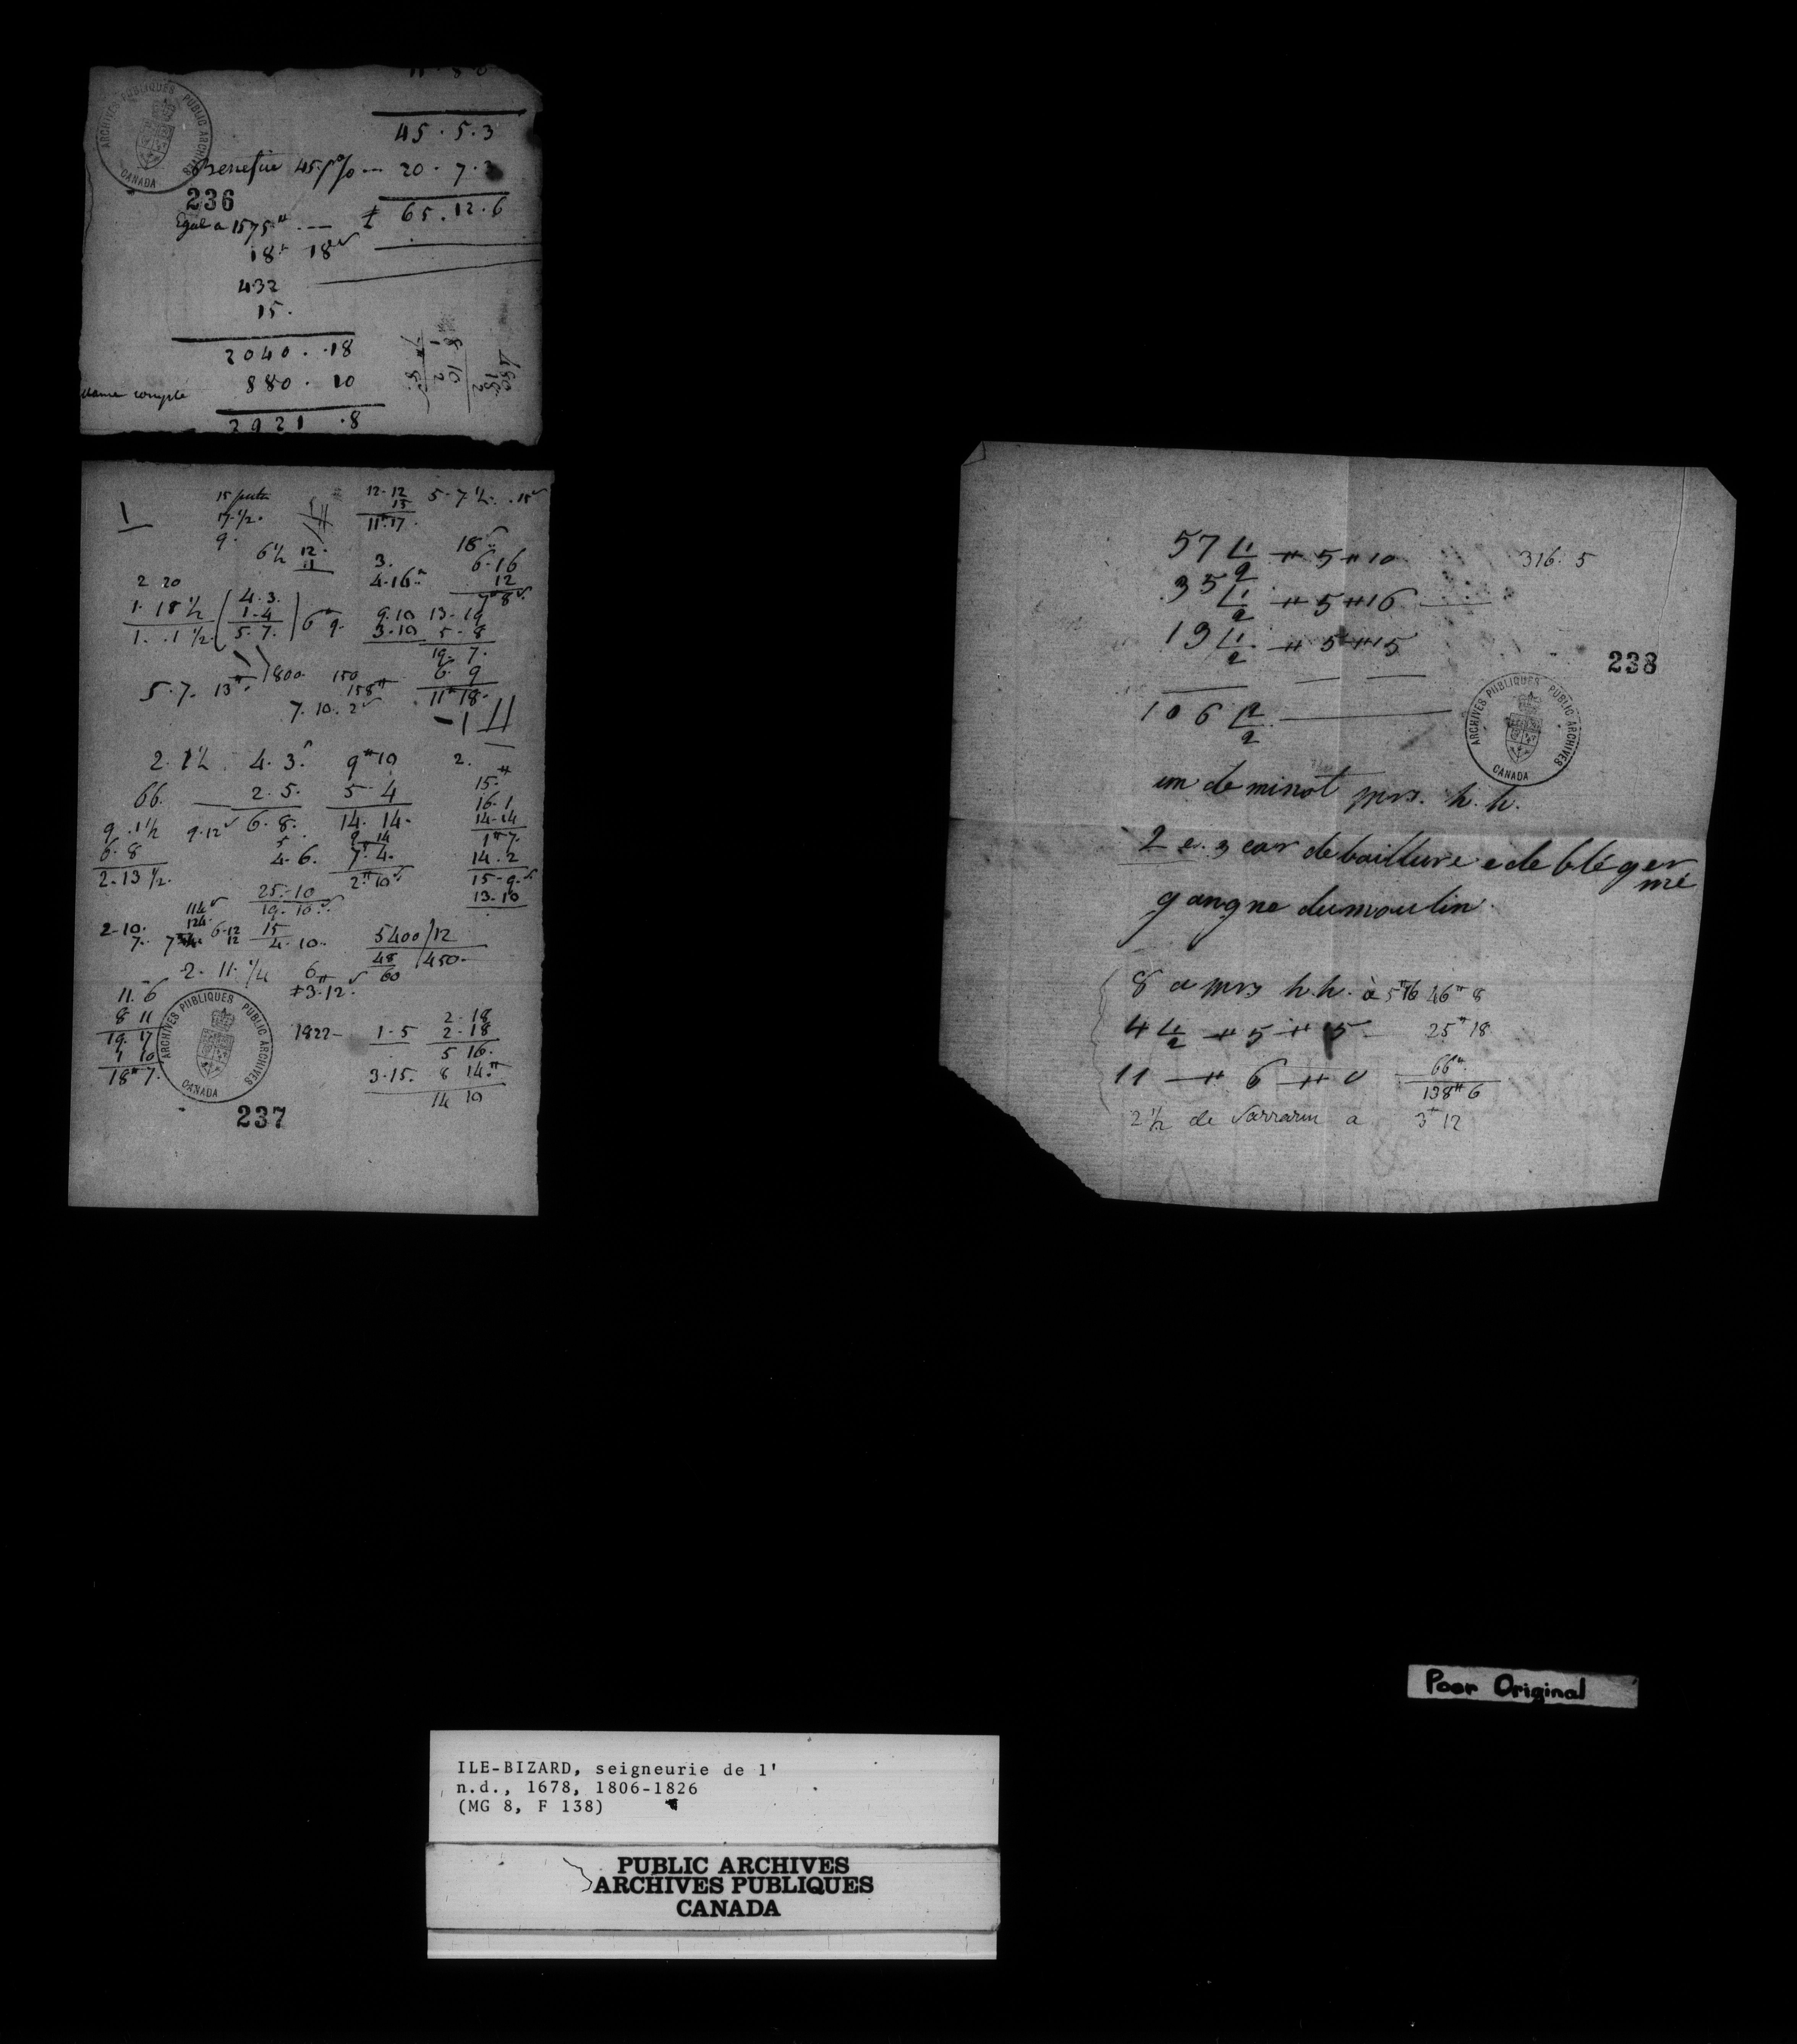 45 . 5 . 3
Benefice 45 p% -- 20 . 7 . 3
236
Egal a 1575 ᵗᵗ --- £ 65 . 12 . 6
18ᵗᵗ 18ˢ
432
15 .
2040 . . 18
880 . 10
même compte
2921 . 8
1
17 . 1/2 .
9 .
12 - 12
15
11ᵗᵗ 17 .
5 - 7 1/2 . . 15
6 1/2 12 .
11
3 .
4 . 16
18
6 - 16
12
7ᵗᵗ 8
2 20
1 . 18 1/2
1 . . 1 1/2
4 . 3 .
1 - 4
5 . 7 .
6ᵗᵗ 9
9 . 10
3 - 10
13 - 19
5 - 8
19 . 7 .
6 . 9
11ᵗᵗ 18 .
5 . 7 . 13ᵗᵗ
1800 150
158ᵗᵗ
7 . 10 . 2
2 . 1 1/2 4 . 3 . 9ᵗᵗ 10 2 .
66 . 2 . 5 . 5 4 15 .ᵗᵗ
9 . 1 1/2 9 . 12 6 . 8 . 14 . 14 . 16 . 1
14 - 14
6 . 8 4 . 6 . 9 14
7ᵗᵗ 4 .
1ᵗᵗ 7 .
14 . 2
2 . 13 1/2 . 2ᵗᵗ 10 15 - 9 .
25 . - 10 13 - 10
19 . 10
2 - 10 . 6 - 12 15
7 . 12 4 - 10 .
5400 / 12
48 / 450 -
60
2 . 11 . 1/4 6
+ 3ᵗᵗ . 12 .
11 . 6
8 11
19 . 17
1 10
18ᵗᵗ 7 .
1822 - 1 - 5
3 - 15 .
2 - 18
2 - 18
5 16 .
8 14 .ᵗᵗ
14 10
ARCHIVES PUBLIQUES PUBLIC ARCHIVES
CANADA
237
57 1/2 ᵗᵗ 5 ᵗᵗ 10 316 . 5
35 1/2 ᵗᵗ 5 ᵗᵗ 16
13 1/2 ᵗᵗ 5 ᵗᵗ 15
238
106 1/2
ARCHIVES PUBLIQUES PUBLIC ARCHIVES
CANADA
un de minot mrs. h. h.
2 e. 3 car de baillure e de blé ger
mé
gangne dumoulin
8 a mrs h. h. à 5ᵗᵗ16 46ᵗᵗ 8
4 1/2 ᵗᵗ 5 ᵗᵗ 15 - 25ᵗᵗ 18
11 - ᵗᵗ 6 ᵗᵗ 0 66ᵗᵗ
138ᵗᵗ 6
2 1/2 de Sarrarin a 3ᵗᵗ 12
Poor Original
ILE-BIZARD, seigneurie de l'
n.d., 1678, 1806-1826
(MG 8, F 138)
PUBLIC ARCHIVES
ARCHIVES PUBLIQUES
CANADA